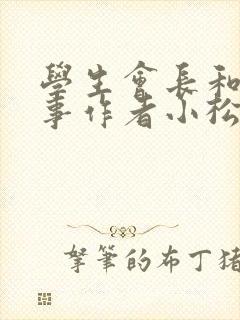 學生會長和
事作者小松
拏筆的布丁猪